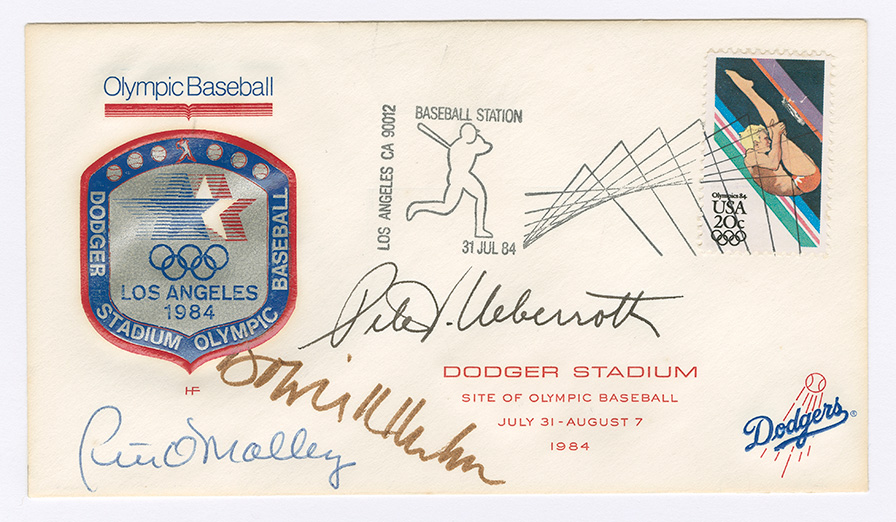 Olympic Baseball
DODGER STADIUM OLYMPIC BASEBALL
LOS ANGELES
1984
HF
LOS ANGELES CA 90012
BASEBALL STATION
31 JUL 84
Olympics 84
USA
20c
Peter V. Ueberroth
Bowie K Kuhn
Peter O'Malley
DODGER STADIUM
SITE OF OLYMPIC BASEBALL
JULY 31-AUGUST 7
1984
Dodgers®